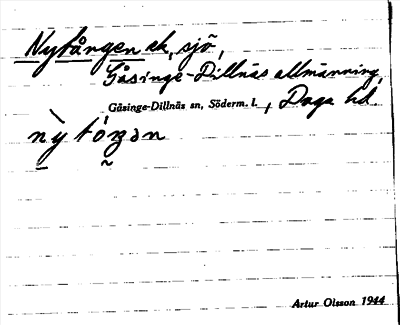 Nytången ek, sjö,
Gåsinge-Dillnäs allmänning,
Gåsinge-Dillnäs sn, Söderm. l., Daga hd.
Artur Olsson 1944